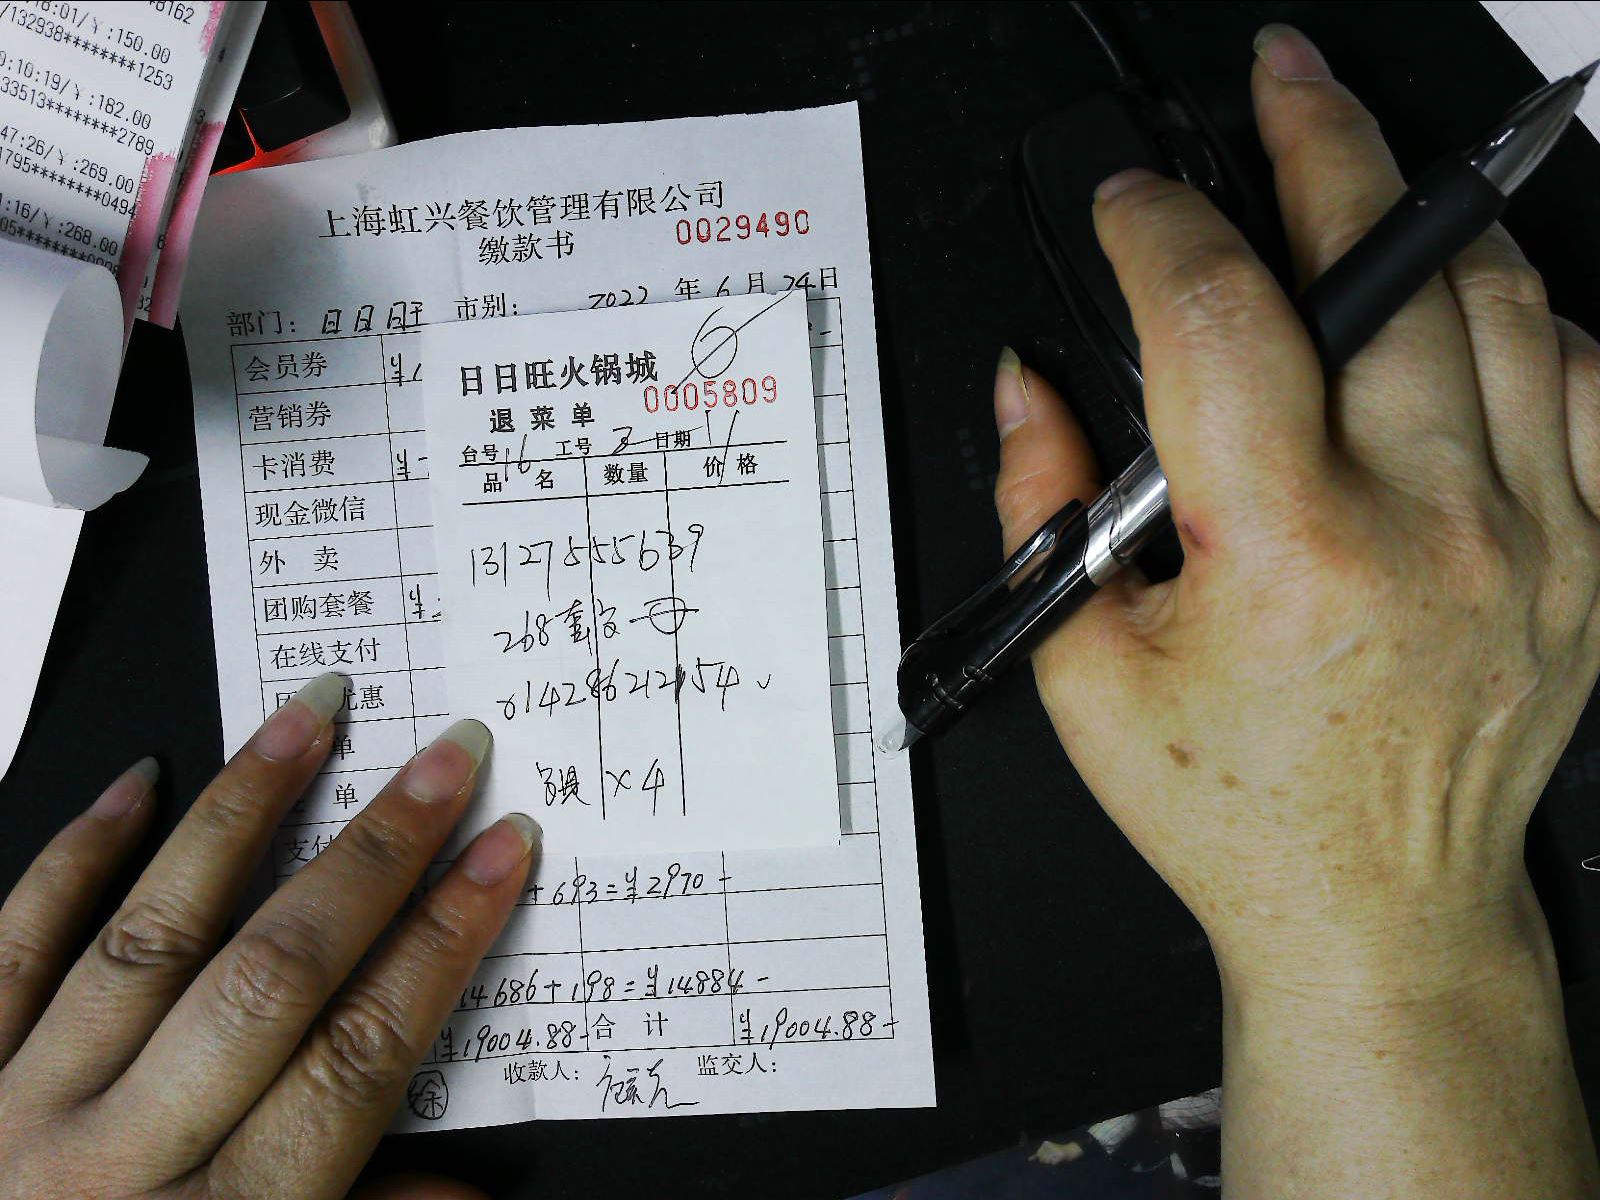 18:01/￥:150.00
/132938********1253
0:10:19/￥:182.00
33513********2789
47:26/￥:269.00
1795********0494
1:16/￥:268.00
上海虹兴餐饮管理有限公司
缴款书
0029490
部门：日日旺 市别： 2022 年 6 月 24 日
会员券
营销券
卡消费
现金微信
外 卖
团购套餐
在线支付
优惠
单
单
支付
日日旺火锅城
退 菜 单
0005809
台号 16 工号 3 日期 11/
品 名 数量 价 格
13127555639
268套
014286212154
锅 × 4
+ 693 = ￥2970 -
14686 + 198 = ￥14884 -
￥19004.88- 合 计 ￥19004.88-
收款人： 监交人：
徐